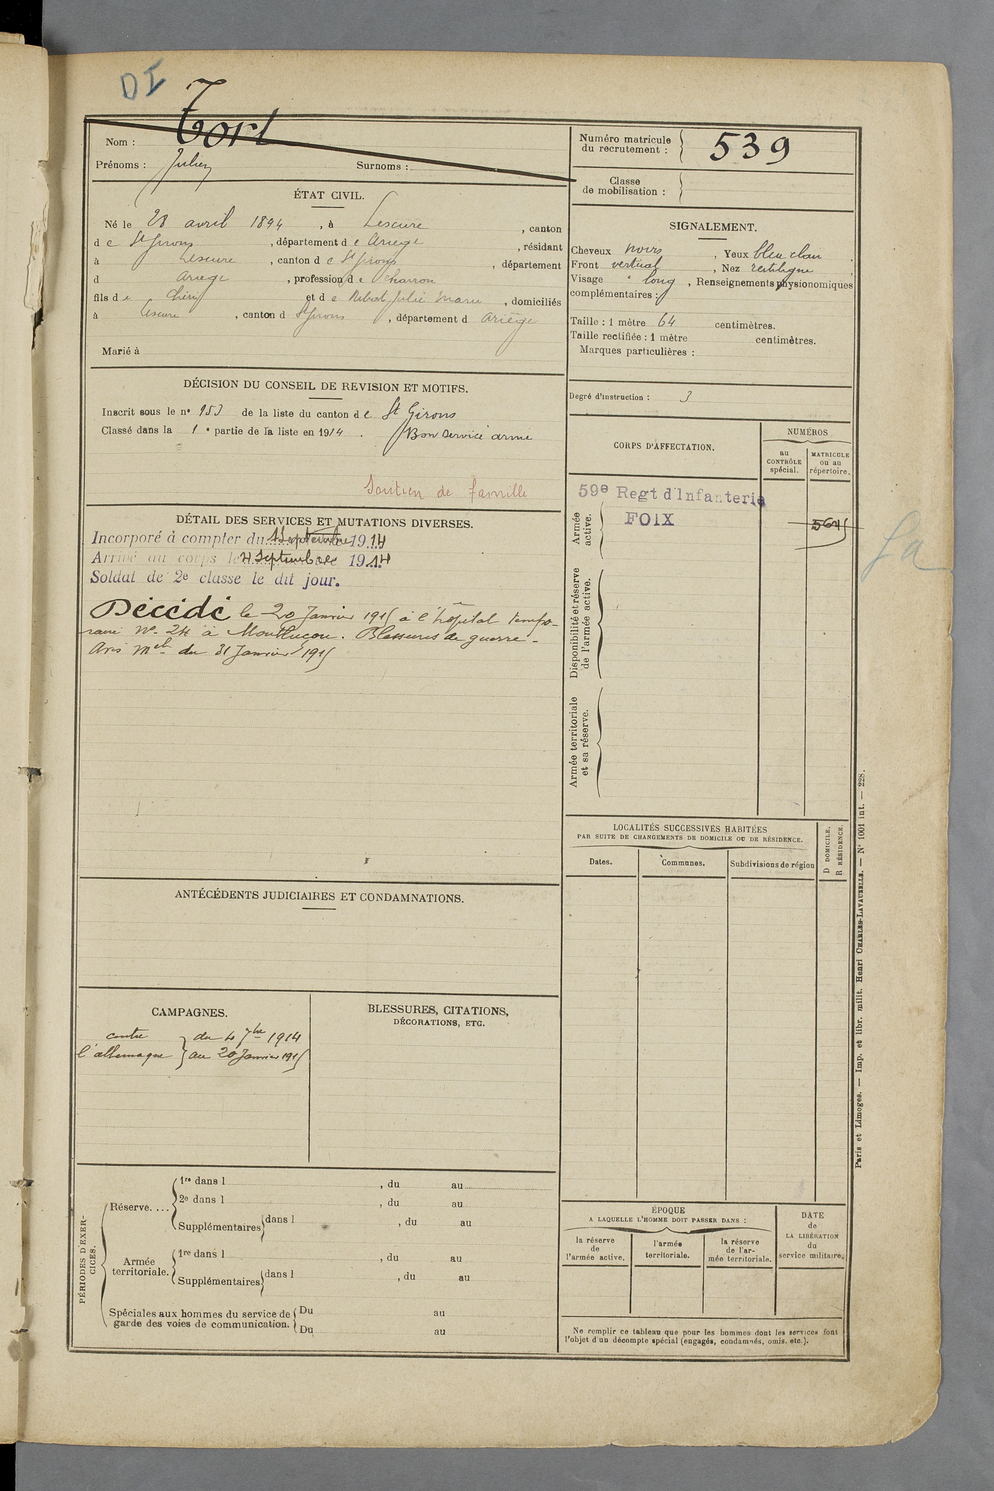 DI
Nom : Tort
Prénoms : Julien Surnoms :
Numéro matricule du recrutement : 539
Classe de mobilisation :
ÉTAT CIVIL.
Né le 28 avril 1894, à Lescure, canton
de St Girons, département de Ariège, résidant
à Lescure, canton de St Girons, département
d Ariège, profession de Charron
fils de Chéry et de Ribat Julie Marie, domiciliés
à Lescure, canton d St Girons, département d Ariège
Marié à
SIGNALEMENT.
Cheveux noirs, Yeux bleu clair
Front vertical, Nez rectiligne
Visage long, Renseignements physionomiques
complémentaires :
Taille : 1 mètre 64 centimètres.
Taille rectifiée : 1 mètre centimètres.
Marques particulières :
Degré d'instruction : 3
DÉCISION DU CONSEIL DE REVISION ET MOTIFS.
Inscrit sous le n° 153 de la liste du canton de St Girons
Classé dans la 1e partie de la liste en 1914. Bon service armé
Soutien de famille
CORPS D'AFFECTATION.
NUMÉROS
au CONTRÔLE spécial.
MATRICULE ou au répertoire.
Armée active.
59e Regt d'Infanterie
FOIX
Disponibilité et réserve de l'armée active.
Armée territoriale et sa réserve.
DÉTAIL DES SERVICES ET MUTATIONS DIVERSES.
Incorporé à compter du 4 Septembre 1914
Arrivé au corps le 4 Septembre 1914
Soldat de 2e classe le dit jour.
Décédé le 20 Janvier 1915 à l'hôpital tempo-
raire No 24 à Montluçon. Blessures de guerre.
Avis Mel du 31 Janvier 1915
LOCALITÉS SUCCESSIVES HABITÉES
PAR SUITE DE CHANGEMENTS DE DOMICILE OU DE RÉSIDENCE.
Dates. Communes. Subdivisions de région
D DOMICILE.
R RÉSIDENCE.
ANTÉCÉDENTS JUDICIAIRES ET CONDAMNATIONS.
CAMPAGNES.
contre l'allemagne } du 4 7bre 1914
au 20 Janvier 1915
BLESSURES, CITATIONS,
DÉCORATIONS, ETC.
PÉRIODES D'EXERCICES.
Réserve....
1re dans l , du au
2e dans l , du au
Supplémentaires dans l , du au
Armée territoriale.
1re dans l , du au
Supplémentaires dans l , du au
Spéciales aux hommes du service de
garde des voies de communication.
Du au
Du au
ÉPOQUE
A LAQUELLE L'HOMME DOIT PASSER DANS :
la réserve de l'armée active.
l'armée territoriale.
la réserve de l'armée territoriale.
DATE de LA LIBÉRATION du service militaire.
Ne remplir ce tableau que pour les hommes dont les services font
l'objet d'un décompte spécial (engagés, condamnés, omis, etc.).
Paris et Limoges. — Imp. et libr. milit. Henri CHARLES-LAVAUZELLE. — N° 1001 int. — 228.